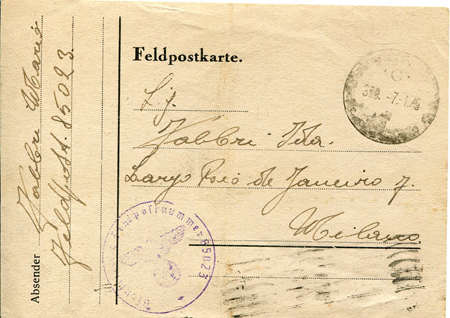 Feldpostkarte.
Fabbri Ida
Largo Rio de Janeiro 7.
Milano
Absender
Fabbri Mario
Feldpost. 85023.
Feldpostnummer 85023